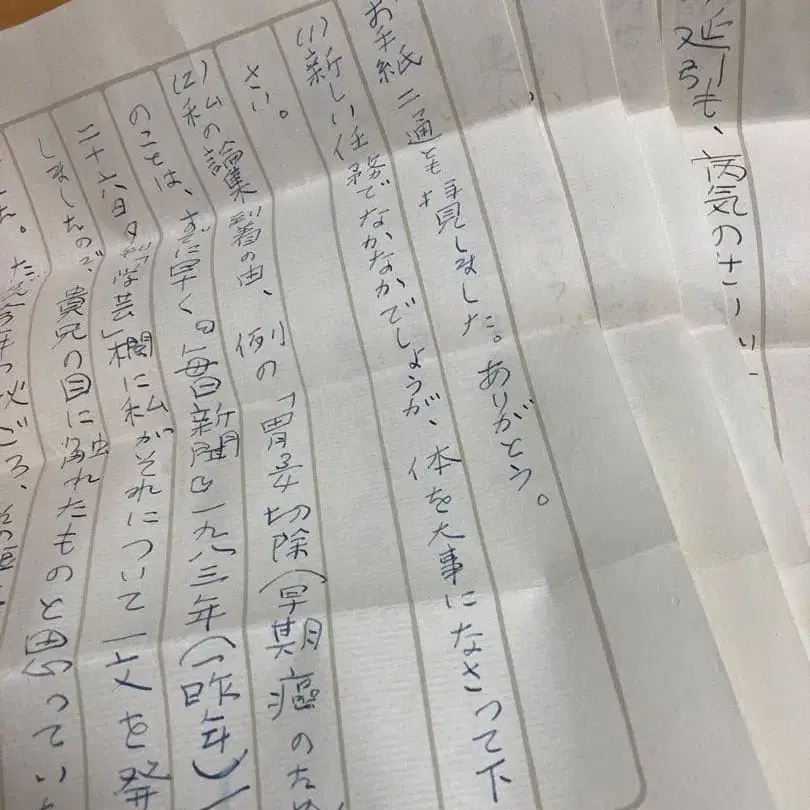 延引も、病気の
お手紙二通とも拝見しました。ありがとう。
(1)新しい任務でなかなかでしょうが、体を大事になさって下
さい。
(2)私の論集到着の由、例の「胃全切除(早期癌のため
のことは、すでに早く『毎日新聞』一九八三年(一昨年)
二十六日夕刊「学芸」欄に私がそれについて一文を発
しましたので、貴兄の目に触れたものと思ってい
した。